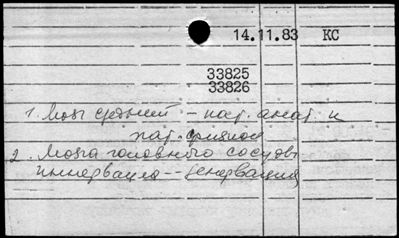 14.11.83 КС
33825
33826
1. Мозг средний - пат. анат. и
пат. физиол
2. Мозга головного сосуды
иннервация - денервация